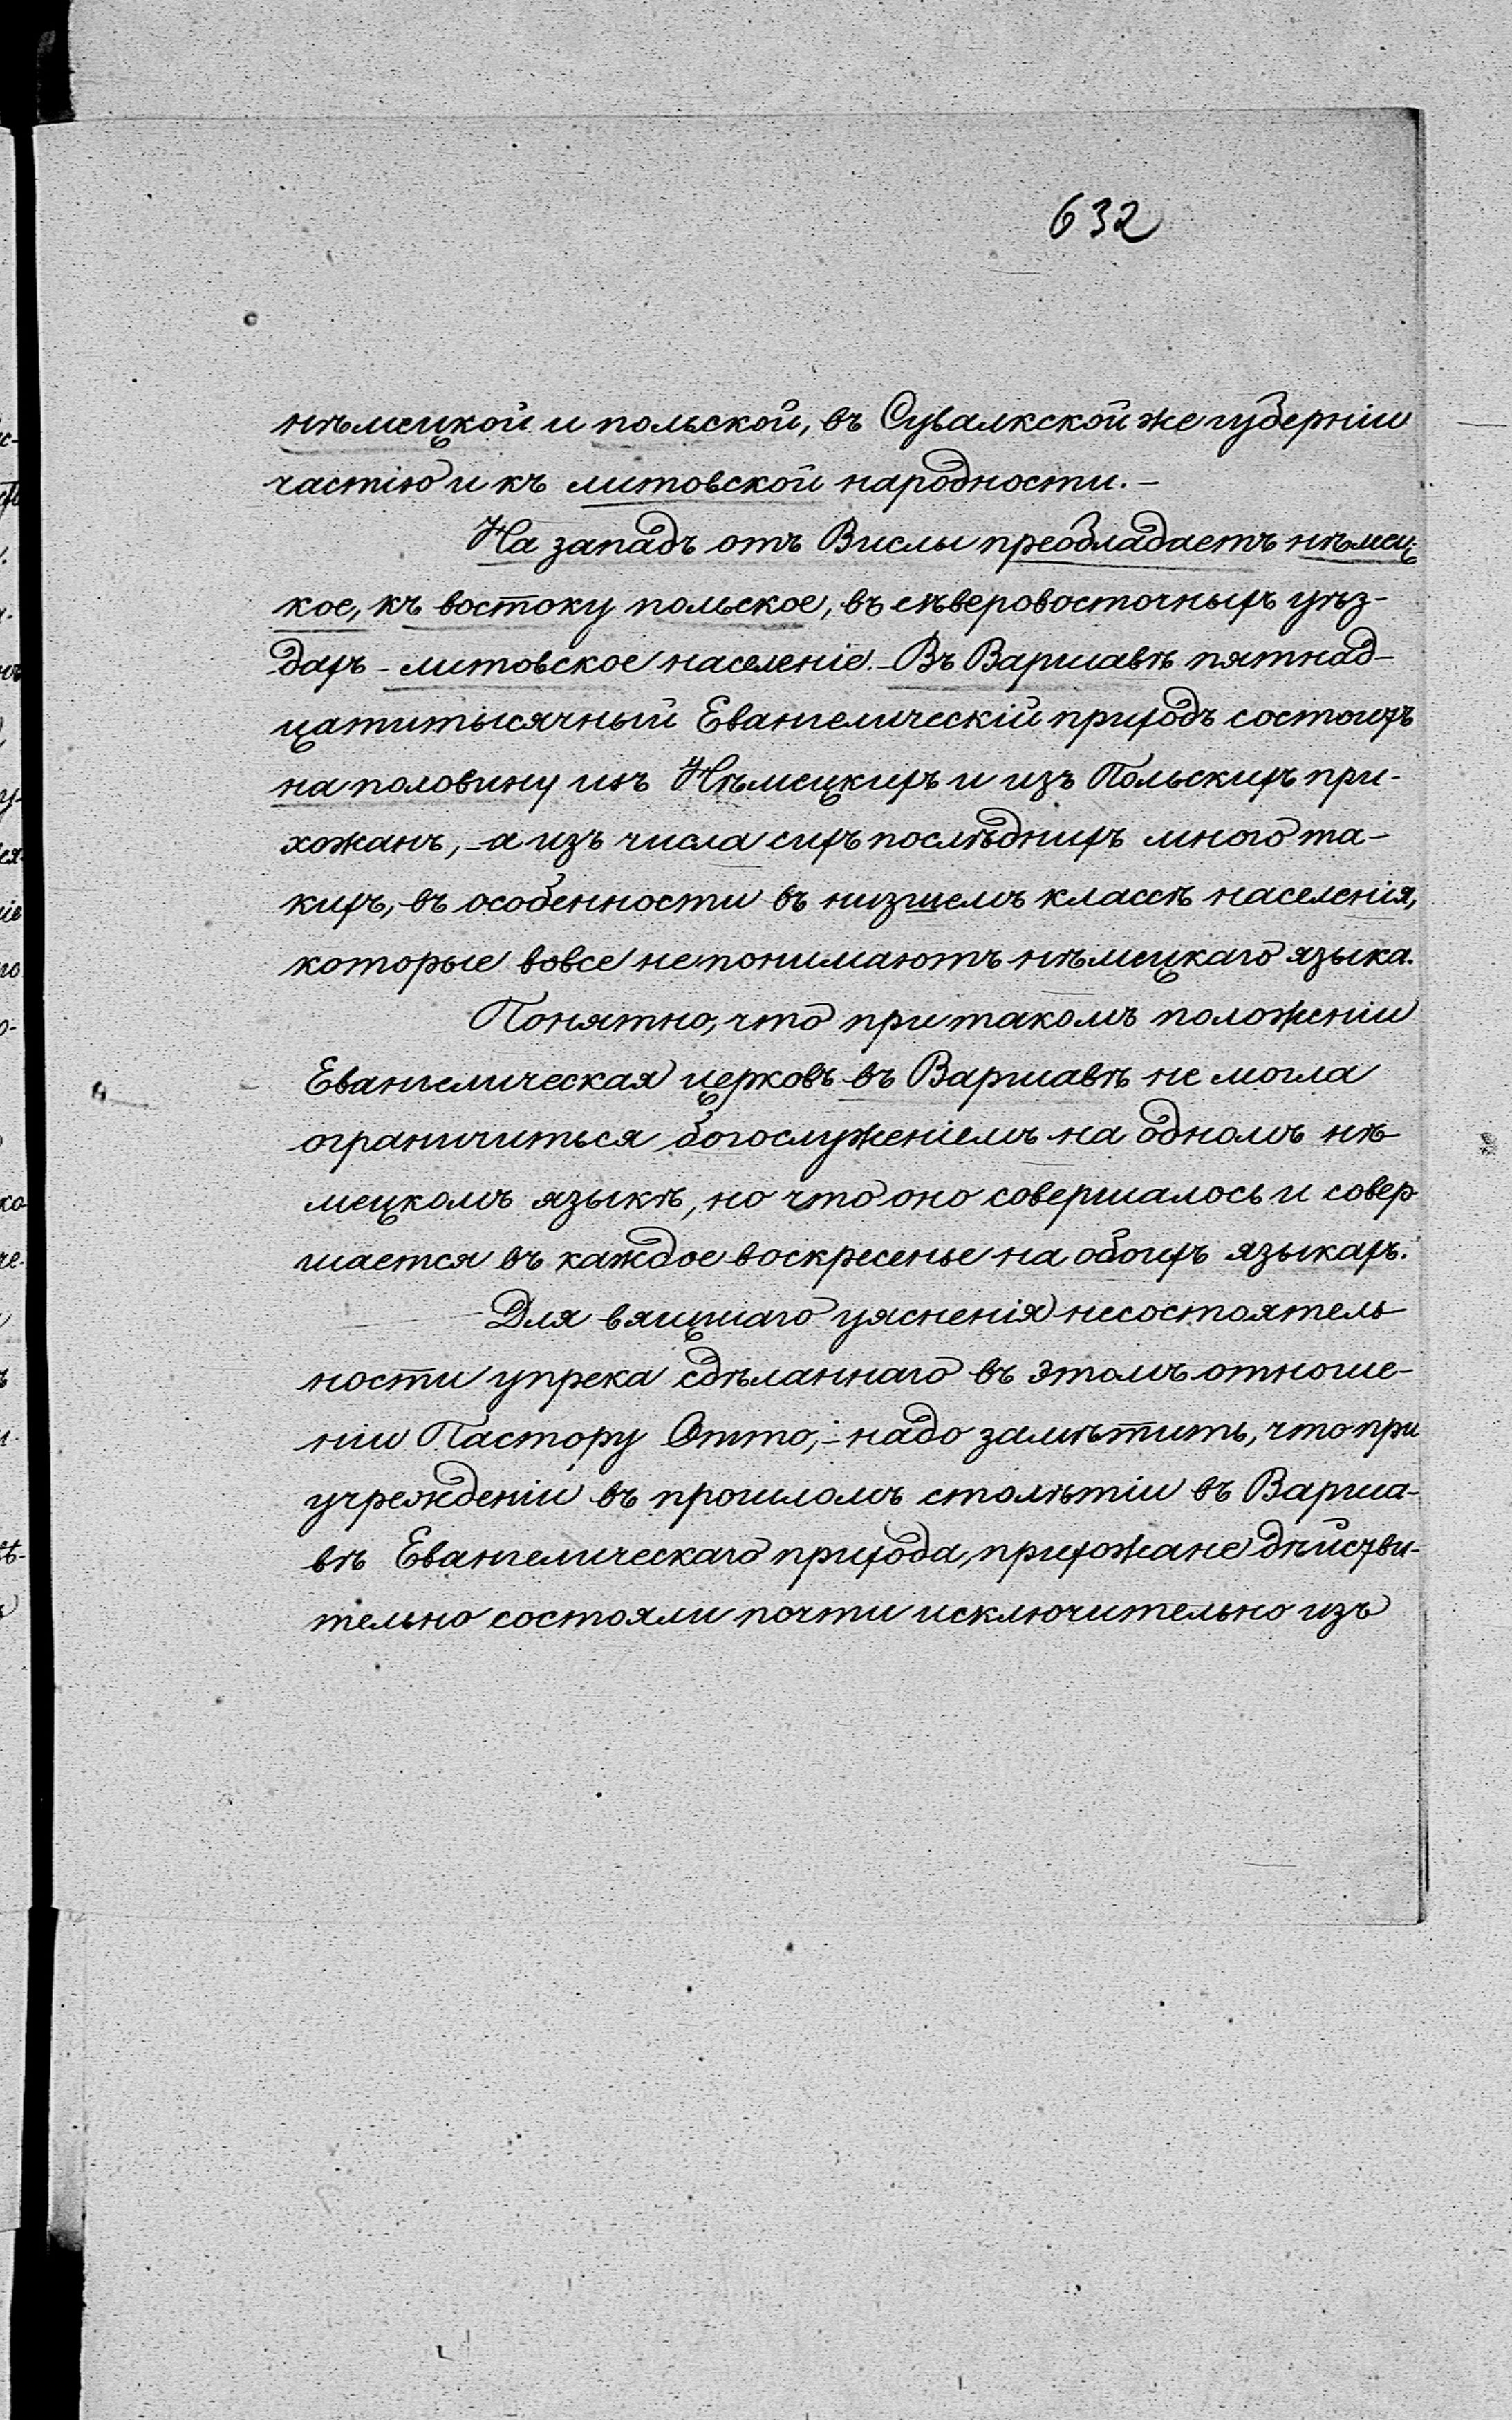 632
нѣмецкой и польской, въ Сувалкской же губерніи
частію и къ литовской народности.-
На западъ отъ Вислы преобладаетъ нѣмец-
кое, къ востоку польское, въ сѣверовосточныхъ уѣз-
дахъ - литовское населеніе.- Въ Варшавѣ пятнад-
цатитысячный Евангелическій приходъ состоитъ
на половину изъ Нѣмецкихъ и изъ Польскихъ при-
хожанъ, - а изъ числа сихъ послѣднихъ много та-
кихъ, въ особенности въ низшемъ классѣ населенія,
которые вовсе не понимаютъ нѣмецкаго языка.
Понятно, что при такомъ положеніи
Евангелическая церковь въ Варшавѣ не могла
ограничиться богослуженіемъ на одномъ нѣ-
мецкомъ языкѣ, но что оно совершалось и совер-
шается въ каждое воскресенье на обоихъ языкахъ.
Для вящшаго уясненія несостоятель-
ности упрека сдѣланнаго въ этомъ отноше-
ніи Пастору Отто, - надо замѣтить, что при
учрежденіи въ прошломъ столѣтіи въ Варша-
вѣ Евангелическаго прихода, прихожане дѣйстви-
тельно состояли почти исключительно изъ